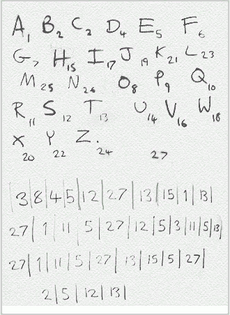 A₁ B₂ C₂ D₄ E₅ F₆
G₇ H₁₅ I₁₇ J₁₉ K₂₁ L₂₃
M₂₅ N₂₆ O₈ P₉ Q₁₀
R₁₁ S₁₂ T₁₃ U₁₄ V₁₆ W₁₈
X₂₀ Y₂₂ Z₂₄. 27
3|8|4|5|12|27|13|15|1|13|
27|1|11|5|27|12|5|3|11|5|13|
27|1|11|5|27|13|15|5|27|
2|5|12|13|